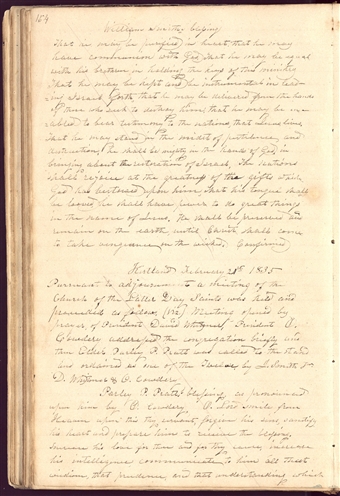 154
William Smith's blessing
That he may be purified in heart, that he may
have communion with God, that he may be equal
with his brethren in holding the keys of this ministry
That he may be kept and be instrumental in lead
ing Israel forth, that he may be delivered from the hands
of those who seek to destroy him; that he may be en
abled to bear testimony to the nations that Jesus lives
That he may stand in the midst of pestilence and
destruction. he shall be mighty in the hands of God in
bringing about the restoration of Israel. The nations
shall rejoice at the greatness of the gifts which
God has bestowed upon him, that his tongue shall
be loosed he shall have power to do great things
in the name of Jesus. He shall be preserved and
remain on the earth until Christ shall come
to take vengeance on the wicked. Confirmed
Kirtland February 21st 1835
Pursuant to adjournment a meeting of the
Church of the Latter Day Saints was held and
proceeded as follows, (Viz) Meeting opened by
prayer, by President David Whitmer. President O.
Cowdery addressed the congregation briefly and
then Elder Parley P. Pratt was called to the stand
and ordained as one of the Twelve by J. Smith Jr
D. Whitmer & O. Cowdery.
Parley P. Pratt's blessing, as pronounced
upon him by O. Cowdery. O Lord smile from
Heaven upon this thy servant, forgive his sins, sanctify
his heart and prepare him to receive the blessing.
Increase his love for thee and for thy cause, increase
his intelligence communicate to him all that
wisdom, that prudence and that understanding which